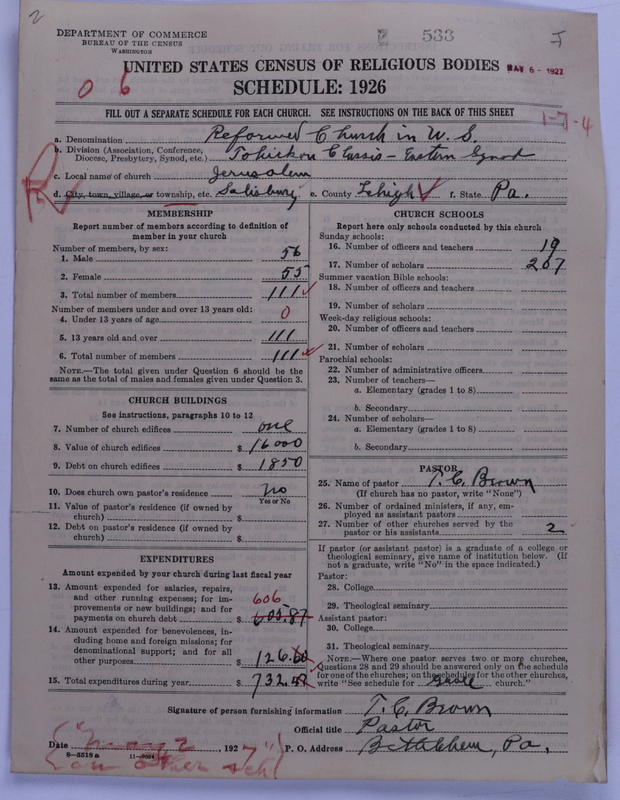 2
DEPARTMENT OF COMMERCE
BUREAU OF THE CENSUS
WASHINGTON
533
UNITED STATES CENSUS OF RELIGIOUS BODIES
MAY 6 - 1927
SCHEDULE: 1926
0 6
FILL OUT A SEPARATE SCHEDULE FOR EACH CHURCH. SEE INSTRUCTIONS ON THE BACK OF THIS SHEET
1-7-4
a. Denomination Reformed Church in U.S.
b. Division (Association, Conference, Diocese, Presbytery, Synod, etc.) Tohickon Classis - Eastern Synod
c. Local name of church Jerusalem
d. City, town, village, or township, etc. Salisbury e. County Lehigh f. State Pa.
R
MEMBERSHIP
Report number of members according to definition of
member in your church
Number of members, by sex:
1. Male 56
2. Female 55
3. Total number of members 111
Number of members under and over 13 years old:
4. Under 13 years of age 0
5. 13 years old and over 111
6. Total number of members 111
NOTE.—The total given under Question 6 should be
same as the total of males and females given under Question 3.
CHURCH BUILDINGS
See instructions, paragraphs 10 to 12
7. Number of church edifices one
8. Value of church edifices $ 16000
9. Debt on church edifices $ 1850
10. Does church own pastor's residence No
Yes or No
11. Value of pastor's residence (if owned by
church) $
12. Debt on pastor's residence (if owned by
church) $
EXPENDITURES
Amount expended by your church during last fiscal year
13. Amount expended for salaries, repairs,
and other running expenses; for im-
provements or new buildings; and for
payments on church debt $ 605.87
606
14. Amount expended for benevolences, in-
cluding home and foreign missions; for
denominational support; and for all
other purposes $ 126.60
15. Total expenditures during year $ 732.47
CHURCH SCHOOLS
Report here only schools conducted by this church
Sunday schools:
16. Number of officers and teachers 19
17. Number of scholars 207
Summer vacation Bible schools:
18. Number of officers and teachers
19. Number of scholars
Week-day religious schools:
20. Number of officers and teachers
21. Number of scholars
Parochial schools:
22. Number of administrative officers
23. Number of teachers—
a. Elementary (grades 1 to 8)
b. Secondary
24. Number of scholars—
a. Elementary (grades 1 to 8)
b. Secondary
PASTOR
25. Name of pastor T. C. Brown
(If church has no pastor, write "None")
26. Number of ordained ministers, if any, em-
ployed as assistant pastors
27. Number of other churches served by the
pastor or his assistants 2
If pastor (or assistant pastor) is a graduate of a college or
theological seminary, give name of institution below. (If
not a graduate, write "No" in the space indicated.)
Pastor:
28. College
29. Theological seminary
Assistant pastor:
30. College
31. Theological seminary
NOTE.—Where one pastor serves two or more churches,
Questions 28 and 29 should be answered only on the schedule
for one of the churches; on the schedules for the other churches,
write "See schedule for church."
Signature of person furnishing information T. C. Brown
Official title Pastor
Date May 2, 1927 P. O. Address Bethlehem, Pa.
8-5518a
on other sch